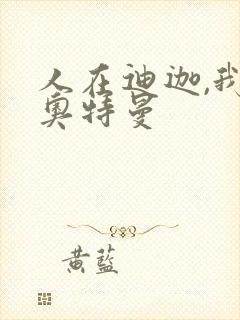 人在迪迦,我
奥特曼
黄藍